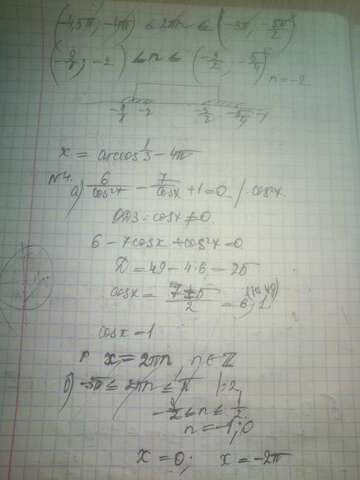 (-4,5π, -4π) ≤ 2πn ≤ (-3π, -5π/2)
(-9/4, -2) ≤ n ≤ (-3/2, -5/4) n = -2
-9/4 -2 -3/2 -5/4 -1
x = arccos 1/3 - 4π
№4.
а) 6/cos²x - 7/cosx + 1 = 0 / cos²x
ОДЗ: cosx ≠ 0
6 - 7cosx + cos²x = 0
Д = 49 - 4·6 = 25
cosx = (7±5)/2 = 6; 1
cosx = 1
x = 2πn, n ∈ Z
б) -3π ≤ 2πn ≤ π |:2
-3/2 ≤ n ≤ 1/2
n = -1; 0
x = 0; x = -2π